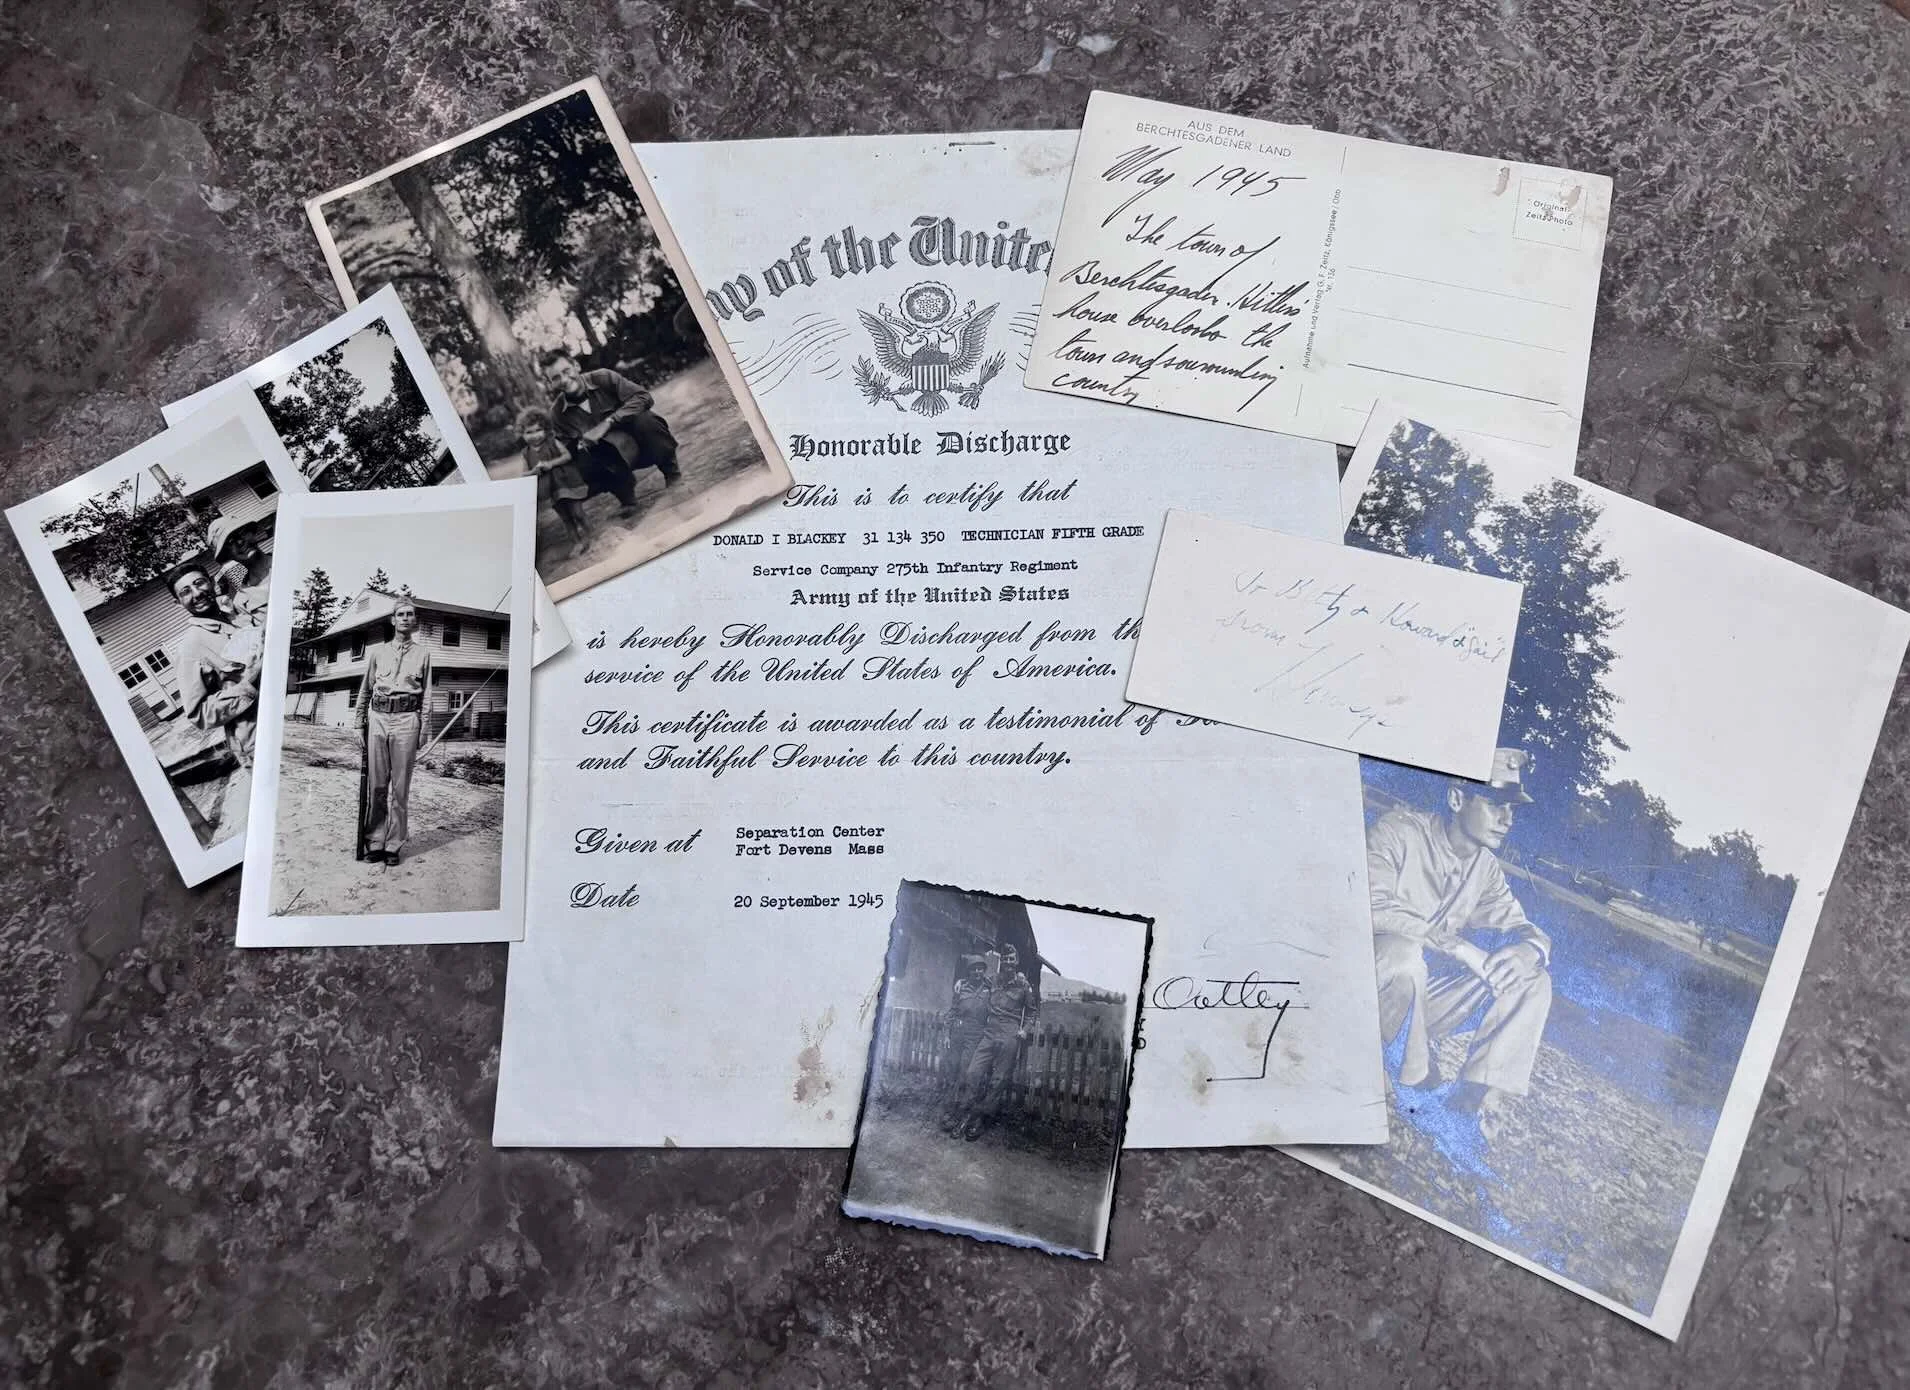 my of the Unite
Honorable Discharge
This is to certify that
DONALD I BLACKEY 31 134 350 TECHNICIAN FIFTH GRADE
Service Company 275th Infantry Regiment
Army of the United States
is hereby Honorably Discharged from th
service of the United States of America.
This certificate is awarded as a testimonial of
and Faithful Service to this country.
Given at Separation Center
Fort Devens Mass
Date 20 September 1945
Oatley
AUS DEM
BERCHTESGADENER LAND
May 1945
The town of
Berchtesgaden. Hitler's
house overlooks the
town and surrounding
country.
Aufnahme und Verlag G. F. Zeitz, Königssee/Obb
Nr. 136
Original
Zeitz Photo
To Betty & Howard & "Gail"
from